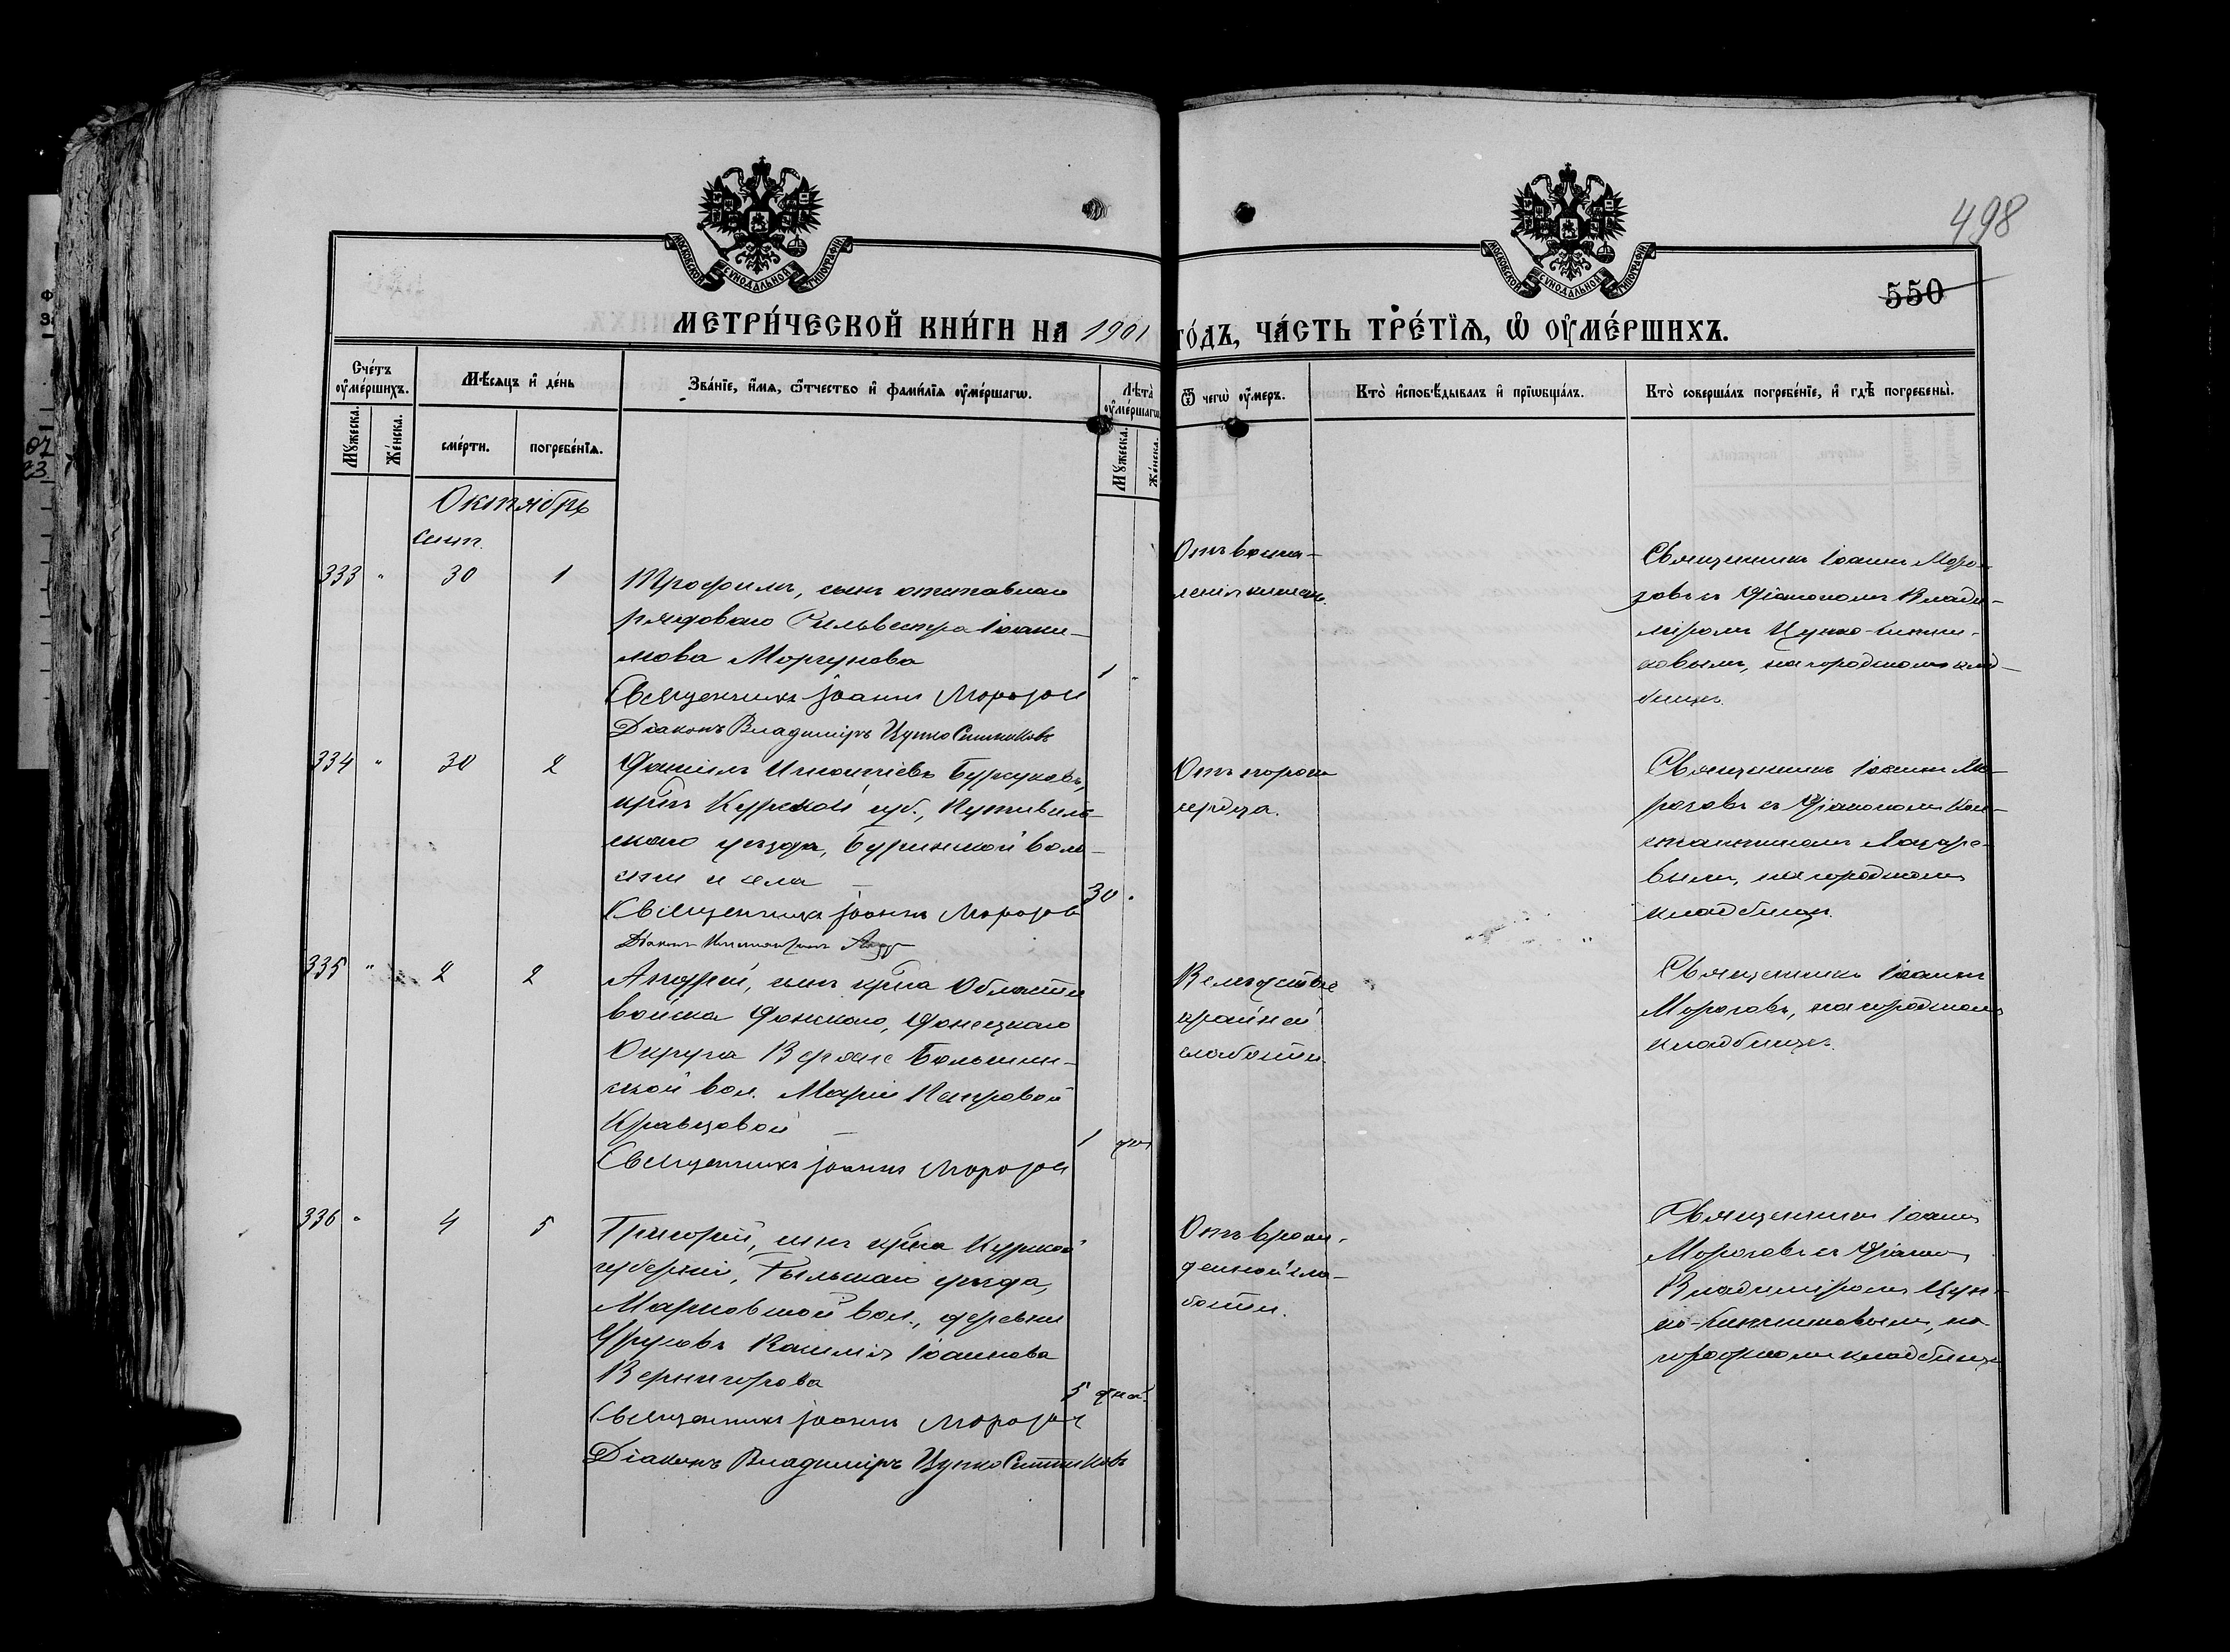 498
550
МОСКОВСКОЙ СѴНОДАЛЬНОЙ ТИПОГРАФІИ
МОСКОВСКОЙ СѴНОДАЛЬНОЙ ТИПОГРАФІИ
МЕТРИ́ЧЕСКОЙ КНИ́ГИ НА 1901 ГО́ДЪ, ЧА́СТЬ ТРЕ́ТЇѦ, Ѡ҆ ОУ҆МЕ́РШИХЪ.
Сче́тъ оу҆ме́ршихъ.
Мꙋ́жеска.
Же́нска.
Мѣ́сѧцъ и҆ де́нь
сме́рти.
погребе́нїѧ.
Зва́нїе, и҆́мѧ, ѻ҆́тчество и҆ фами́лїѧ оу҆ме́ршагѡ.
Лѣ́та оу҆ме́ршагѡ
Мꙋ́жеска.
Же́нска.
Ѿ чегѡ̀ оу҆́меръ.
Кто̀ и҆сповѣ́дывалъ и҆ прїѡбща́лъ.
Кто̀ соверша́лъ погребе́нїе, и҆ гдѣ̀ погребены̀.
Октябрь
Сент.
333 " 30 1
Трофимъ, сынъ отставнаго
рядоваго Сильвестра Іоаки-
мова Моргунова
1 "
Священникъ Іоаннъ Морозовъ
Діаконъ Владиміръ Цупко Ситниковъ
Отъ воспа-
ленія кишекъ.
Священникъ Іоаннъ Моро-
зовъ съ Діакономъ Влади-
міромъ Цупко-Ситни-
ковымъ, на городскомъ клад-
бищѣ.
334 " 30 2
Даніилъ Игнатіевъ
кр-нъ Курской губ., Путивль-
скаго уѣзда, Буринской воло-
сти и села
30 "
Священникъ Іоаннъ Морозовъ
Діаконъ Константинъ
Отъ порока
сердца.
Священникъ Іоаннъ Мо-
розовъ съ Діакономъ Кон-
стантиномъ Лазаре-
вымъ, на городскомъ
кладбищѣ.
335 " 2 2
Андрей, сынъ кр-ки Области
войска Донскаго, Донецкаго
Округа Верхне Большин-
ской вол. Маріи Петровой
Кравцовой
1 дня
Священникъ Іоаннъ Морозовъ
Вслѣдствіе
крайней
слабости.
Священникъ Іоаннъ
Морозовъ, на городскомъ
кладбищѣ.
336 " 4 5
Григорій, сынъ кр-на Курской
губерніи, Рыльскаго уѣзда,
Марковской вол., деревни
Василія Іоаннова
Вернигорова
5 дней
Священникъ Іоаннъ Морозовъ
Діаконъ Владиміръ Цупко Ситниковъ
Отъ врож-
денной сла-
бости.
Священникъ Іоаннъ
Морозовъ съ Діакон.
Владиміромъ Цуп-
ко-Ситниковымъ, на
городскомъ кладбищѣ